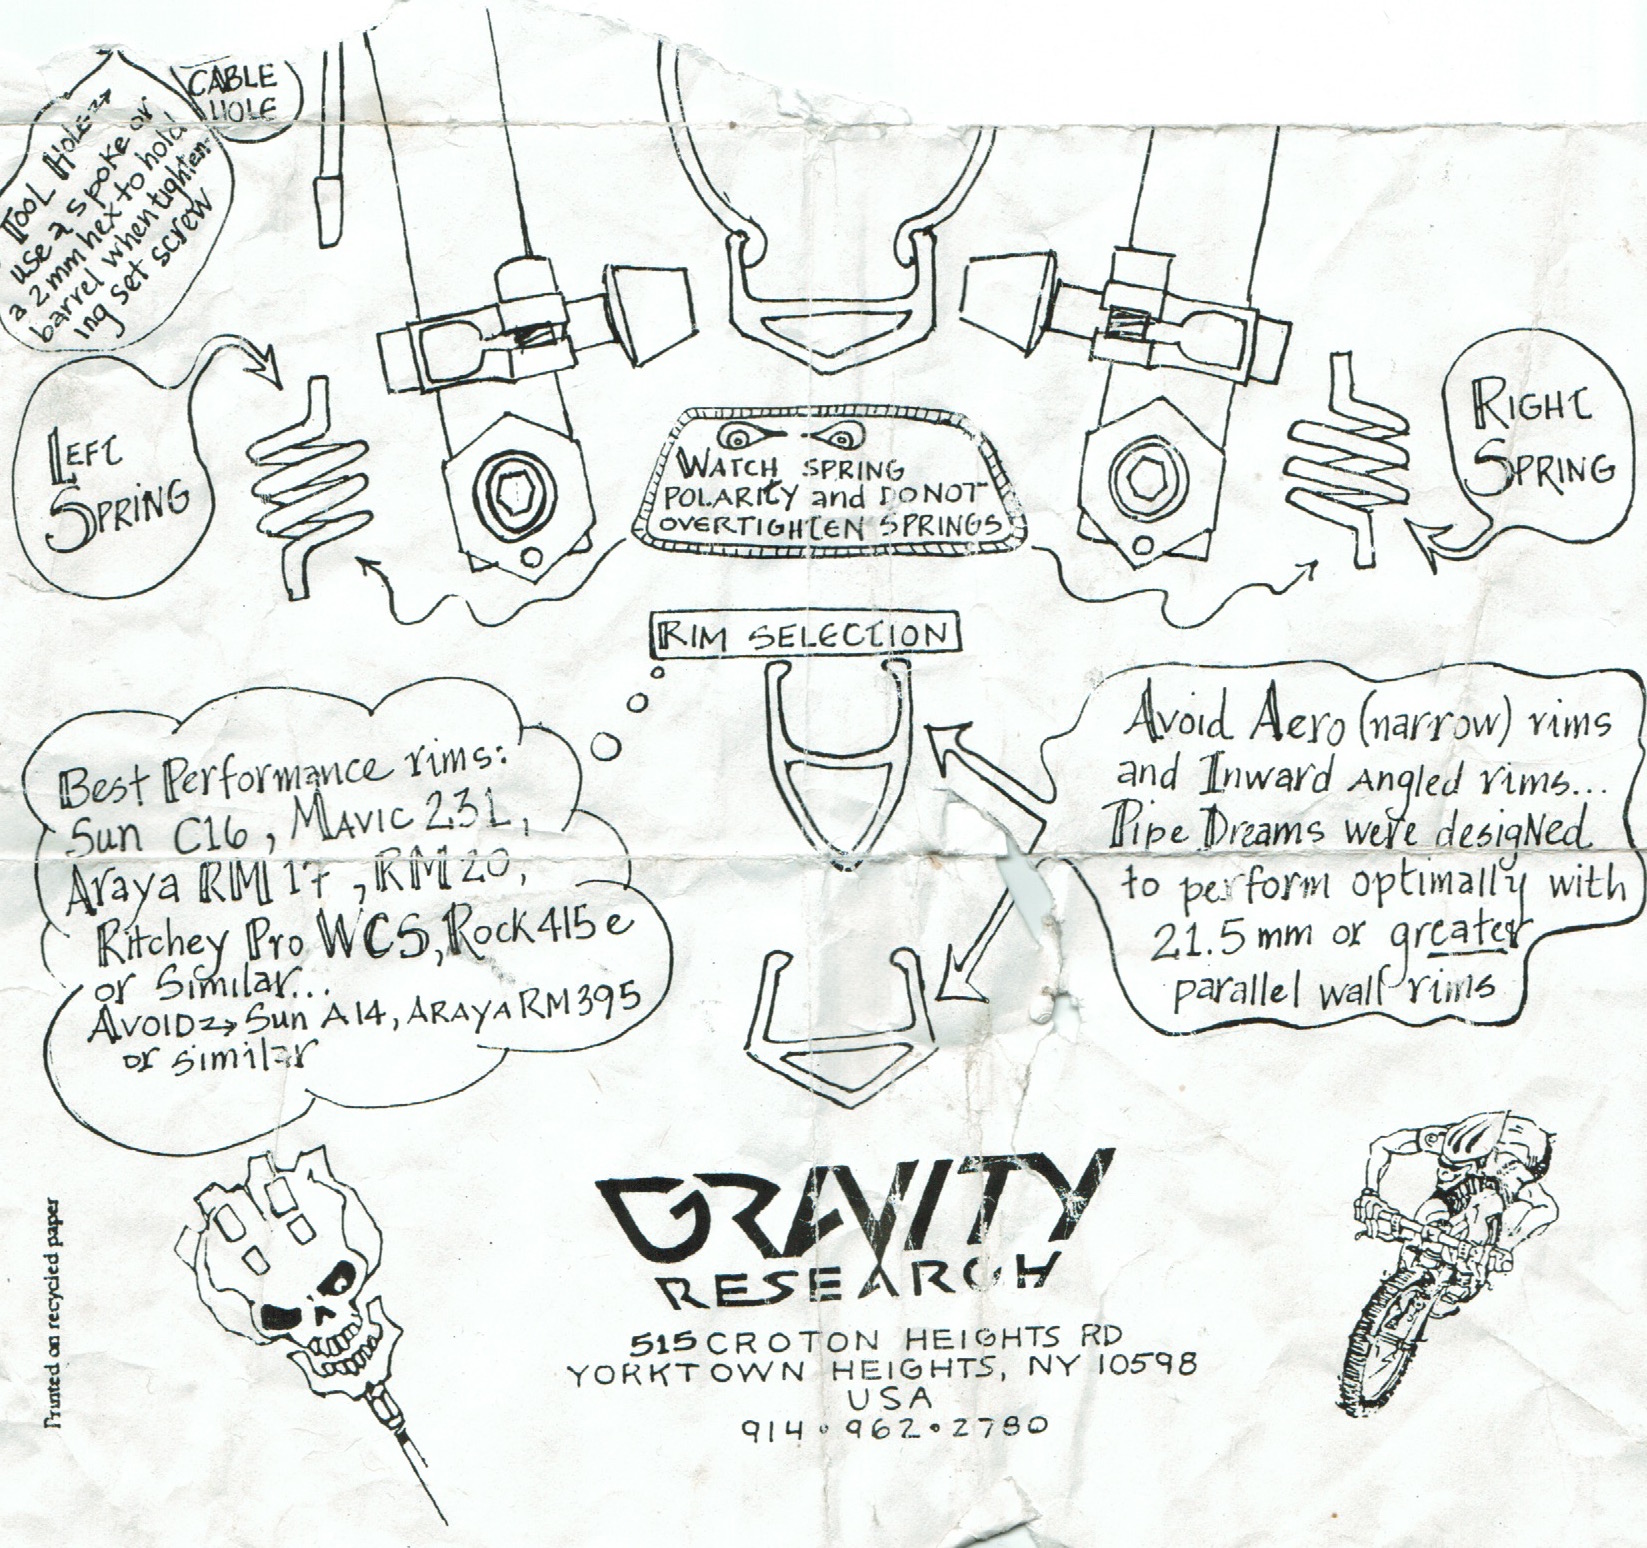 CABLE
HOLE
TOOL HOLE→
use a spoke or
a 2mm hex to hold
barrel when tighten-
ing set screw
LEFT
SPRING
WATCH SPRING
POLARITY and DO NOT
OVERTIGHTEN SPRINGS
RIGHT
SPRING
RIM SELECTION
Best Performance rims:
Sun C16, MAVIC 231,
Araya RM 17, RM 20,
Ritchey Pro WCS, Rock 415 e
or Similar...
AVOID→ Sun A14, ARAYA RM395
or similar
Avoid Aero (narrow) rims
and Inward Angled rims...
Pipe Dreams were desigNed
to perform optimally with
21.5 mm or greater
parallel wall rims
GRAVITY
RESEARCH
515 CROTON HEIGHTS RD
YORKTOWN HEIGHTS, NY 10598
USA
914•962•2780
Printed on recycled paper